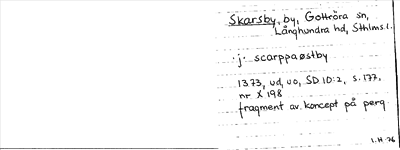 Skarsby, by, Gottröra sn,
Långhundra hd, Sthlms l.
·j· scarppaøstby
1373, ud, uo, SD 10:2, s. 177,
nr X 198
fragment av koncept på perg
1.H.76